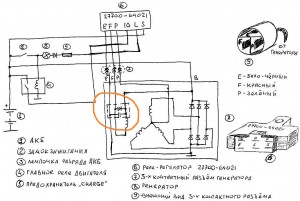 27700-64021
E F P IG L S
F P E
B
ОТ
ГЕНЕРАТОРА
E - БЕЛО-ЧЁРНЫЙ
F - КРАСНЫЙ
P - ЗЕЛЁНЫЙ
27700-64021
① АКБ
② ЗАМОК ЗАЖИГАНИЯ
③ ЛАМПОЧКА РАЗРЯДА АКБ
④ ГЛАВНОЕ РЕЛЕ ДВИГАТЕЛЯ
⑤ ПРЕДОХРАНИТЕЛЬ "CHARGE"
⑥ РЕЛЕ-РЕГУЛЯТОР 27700-64021
⑦ 3-Х КОНТАКТНЫЙ РАЗЪЁМ ГЕНЕРАТОРА
⑧ ГЕНЕРАТОР
⑨ ВНЕШНИЙ ВИД 3-Х КОНТАКТНОГО РАЗЪЁМА